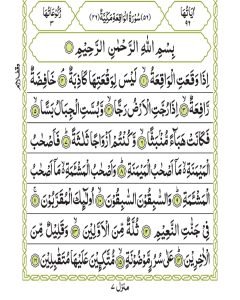 اٰيَاتُهَا ٩٦ (٥٦) سُوْرَةُ الْوَاقِعَةِ مَكِّيَّةٌ (٤٦) رُكُوْعَاتُهَا ٣
بِسْمِ اللّٰهِ الرَّحْمٰنِ الرَّحِيْمِ
اِذَا وَقَعَتِ الْوَاقِعَةُ ۙ لَيْسَ لِوَقْعَتِهَا كَاذِبَةٌ ۘ خَافِضَةٌ
رَّافِعَةٌ ۙ اِذَا رُجَّتِ الْاَرْضُ رَجًّا ۙ وَّبُسَّتِ الْجِبَالُ بَسًّا ۙ
فَكَانَتْ هَبَآءً مُّنْۢبَثًّا ۙ وَّكُنْتُمْ اَزْوَاجًا ثَلٰثَةً ؕ فَاَصْحٰبُ
الْمَيْمَنَةِ ۙ مَاۤ اَصْحٰبُ الْمَيْمَنَةِ ؕ وَاَصْحٰبُ الْمَشْـَٔمَةِ ۙ مَاۤ اَصْحٰبُ
الْمَشْـَٔمَةِ ؕ وَالسّٰبِقُوْنَ السّٰبِقُوْنَ ۙ اُولٰٓئِكَ الْمُقَرَّبُوْنَ ۚ
فِيْ جَنّٰتِ النَّعِيْمِ ثُلَّةٌ مِّنَ الْاَوَّلِيْنَ ۙ وَقَلِيْلٌ مِّنَ
الْاٰخِرِيْنَ ؕ عَلٰى سُرُرٍ مَّوْضُوْنَةٍ ۙ مُّتَّكِـِٕيْنَ عَلَيْهَا مُتَقٰبِلِيْنَ
منزل ٧